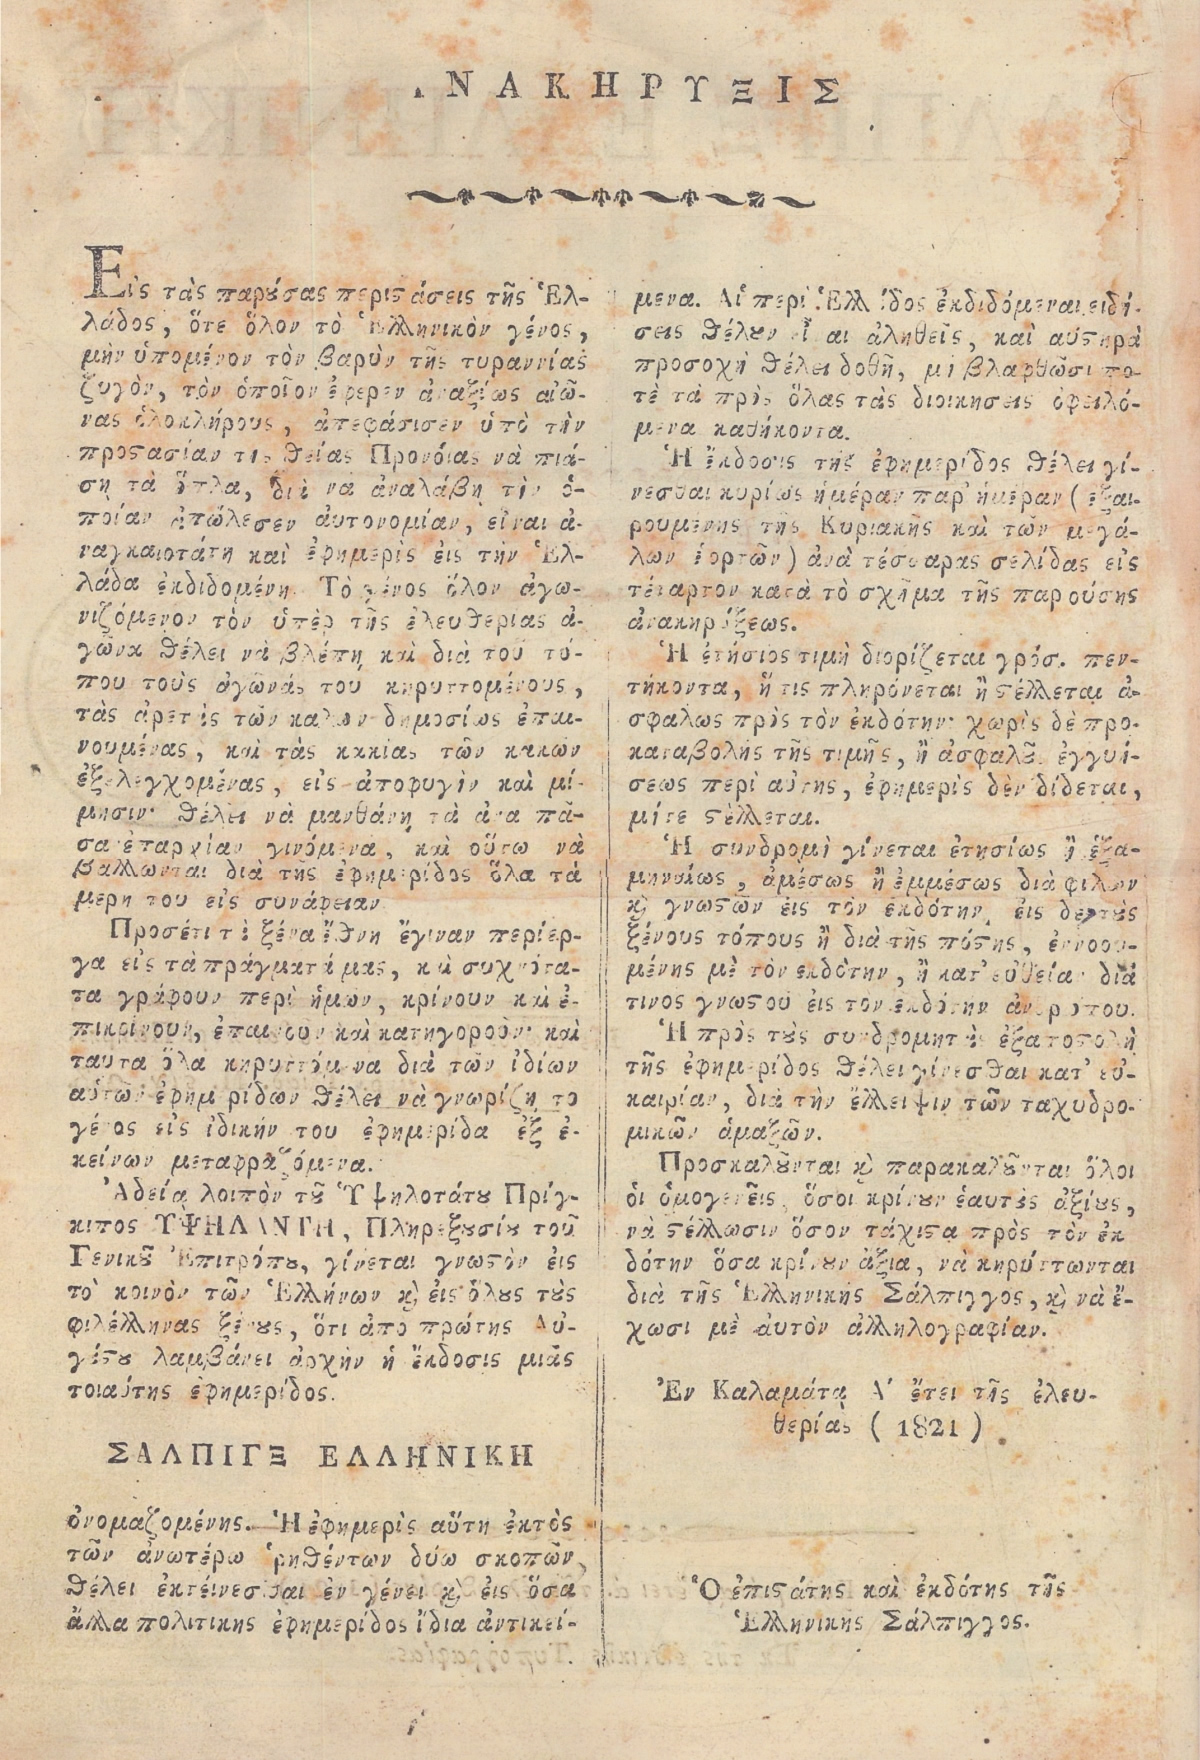 ΑΝΑΚΗΡΥΞΙΣ
Εἰς τὰς παρȣ́σας περιϛάσεις τῆς Ἑλ-
λάδος, ὅτε ὅλον τὸ Ἑλληνικὸν γένος,
μὴν ὑπομένον τὸν βαρὺν τῆς τυραννίας
ζυγὸν, τὸν ὁποῖον ἔφερεν ἀναξίως αἰῶ-
νας ὁλοκλήρους, ἀπεφάσισεν ὑπὸ τὴν
προϛασίαν τῆς θείας Προνόιας νὰ πιά-
ση τὰ ὅπλα, διὰ νὰ ἀναλάβη τὴν ὁ-
ποίαν ἀπώλεσεν ἀυτονομίαν, εἶναι ἀ-
ναγκαιοτάτη καὶ ἐφημερὶς ἐις τὴν Ἑλ-
λάδα ἐκδιδομένη. Τὸ γένος ὅλον ἀγω-
νιζόμενον τὸν ὑπὲρ τῆς ἐλευθερίας ἀ-
γῶνα θέλει νὰ βλέπη καὶ διὰ τοῦ τύ-
που τοὺς ἀγῶνάς του κηρυττομένους,
τὰς ἀρετὰς τῶν καλῶν δημοσίως ἐπαι-
νουμένας, καὶ τὰς κακίας τῶν κακῶν
ἐξελεγχομένας, εἰς ἀποφυγὴν καὶ μί-
μησιν· θέλει νὰ μανθάνη τὰ ἀνα πᾶ-
σα ἐπαρχίαν γινόμενα, καὶ οὕτω νὰ
βάλλωνται διὰ τῆς ἐφημερίδος ὅλα τὰ
μερη του εἰς συνάφειαν
Προσέτι τὰ ξένα ἔθνη ἔγιναν περίερ-
γα εἰς τὰ πράγματά μας, καὶ συχνότα-
τα γράφουν περὶ ἡμῶν, κρίνουν καὶ ἐ-
πικρίνουν, ἐπαινουν καὶ κατηγοροῦν· καὶ
ταυτα ὅλα κηρυττόμενα διὰ τῶν ἰδίων
αὑτῶν ἐφημερίδων θέλει νὰ γνωρίζη το
γένος εἰς ἰδικήν του ἐφημερίδα ἐξ ἐ-
κείνων μεταφραζόμενα.
Ἀδεία λοιπὸν τȣ͂ Ὑψηλοτάτȣ Πρίγ-
κιπος ΥΨΗΛΑΝΤΗ, Πληρεξȣσίȣ τοῦ
Γενικȣ͂ Ἐπιτρόπȣ, γίνεται γνωϛὸν ἐις
τὸ κοινὸν τῶν Ἑλλήνων ϗ ἐις ὅλȣς τȣ̀ς
φιλέλληνας ξένȣς, ὅτι ἀπο πρώτης Αὐ-
γȣ́ϛȣ λαμβάνει ἀρχὴν ἡ ἔκδοσις μιᾶς
τοιαύτης ἐφημερίδος.
ΣΑΛΠΙΓΞ ΕΛΛΗΝΙΚΗ
ὀνομαζομένης. Ἡ ἐφημερὶς αὕτη ἐκτὸς
τῶν ἀνωτέρω ῥηθέντων δύω σκοπῶν,
θέλει ἐκτέινεσθαι ἐν γένει ϗ ἐις ὅσα
ἄλλα πολιτικης ἐφημερίδος ἴδια ἀντικεί-
μενα. Αἱ περὶ Ἑλλάδος ἐκδιδόμεναι ειδή-
σεις θέλȣν εἶναι ἀληθεῖς, καὶ αὐϛηρὰ
προσοχὴ θέλει δοθῆ, μὴ βλαφθῶσι πο-
τὲ τὰ πρὸς ὅλας τὰς διοικησεις ὀφειλό-
μενα καθήκοντα.
Ἡ ἔκδοσις τῆς ἐφημερίδος θέλει γί-
νεσθαι κυρίως ἡμέραν παρ' ἡμέραν (ἐξαι-
ρουμένης τῆς Κυριακῆς καὶ τῶν μεγά-
λων ἑορτῶν) ἀνὰ τέσσαρας σελίδας εἰς
τέταρτον κατὰ τὸ σχῆμα τῆς παρούσης
ἀνακηρύξεως.
Ἡ ἐτήσιος τιμὴ διορίζεται γρόσ. πεν-
τήκοντα, ἥτις πληρόνεται ἢ ϛέλλεται ἀ-
σφαλως πρὸς τὸν ἐκδότην· χωρὶς δὲ προ-
καταβολῆς τῆς τιμῆς, ἢ ἀσφαλȣ͂ς ἐγγυή-
σεως περὶ αὐτης, ἐφημερὶς δὲν δίδεται,
μήτε ϛέλλεται.
Ἡ συνδρομὴ γίνεται ἐτησίως ἢ ἑξα-
μηνιαίως, ἀμέσως ἢ ἐμμέσως διὰ φιλων
ϗ γνωϛῶν ἐις τὸν ἐκδότην, ἐις δε τȣ̀ς
ξένους τόπους ἢ διὰ τῆς πόϛης, ἐννοου-
μένης μὲ τὸν ἐκδότην, ἢ κατ' εὐθεῖαν διά
τινος γνωϛοῦ ἐις τον ἐκδότην ἀνθρώπου.
Ἡ πρὸς τȣ̀ς συνδρομητὰς ἐξαποϛολὴ
τῆς ἐφημερίδος θέλει γίνεσθαι κατ' εὐ-
καιρίαν, διὰ τὴν ἔλλειψιν τῶν ταχυδρο-
μικῶν ἁμαξῶν.
Προσκαλȣ͂νται ϗ παρακαλȣ͂νται ὅλοι
ὁι ὁμογενεῖς, ὅσοι κρίνȣν ἑαυτȣ̀ς ἀξίȣς,
νὰ ϛέλλωσιν ὅσον τάχιϛα πρὸς τὸν ἐκ
δότην ὅσα κρίνȣν ἄξια, νὰ κηρύττωνται
διὰ τῆς Ἑλληνικῆς Σάλπιγγος, ϗ νὰ ἔ-
χωσι μὲ ἀυτὸν ἀλληλογραφίαν.
Ἐν Καλαμάτα Α' ἔτει τῆς ἐλευ-
θερίας (1821)
Ὁ ἐπιϛάτης καὶ ἐκδότης τῆς
Ἑλληνικῆς Σάλπιγγος.